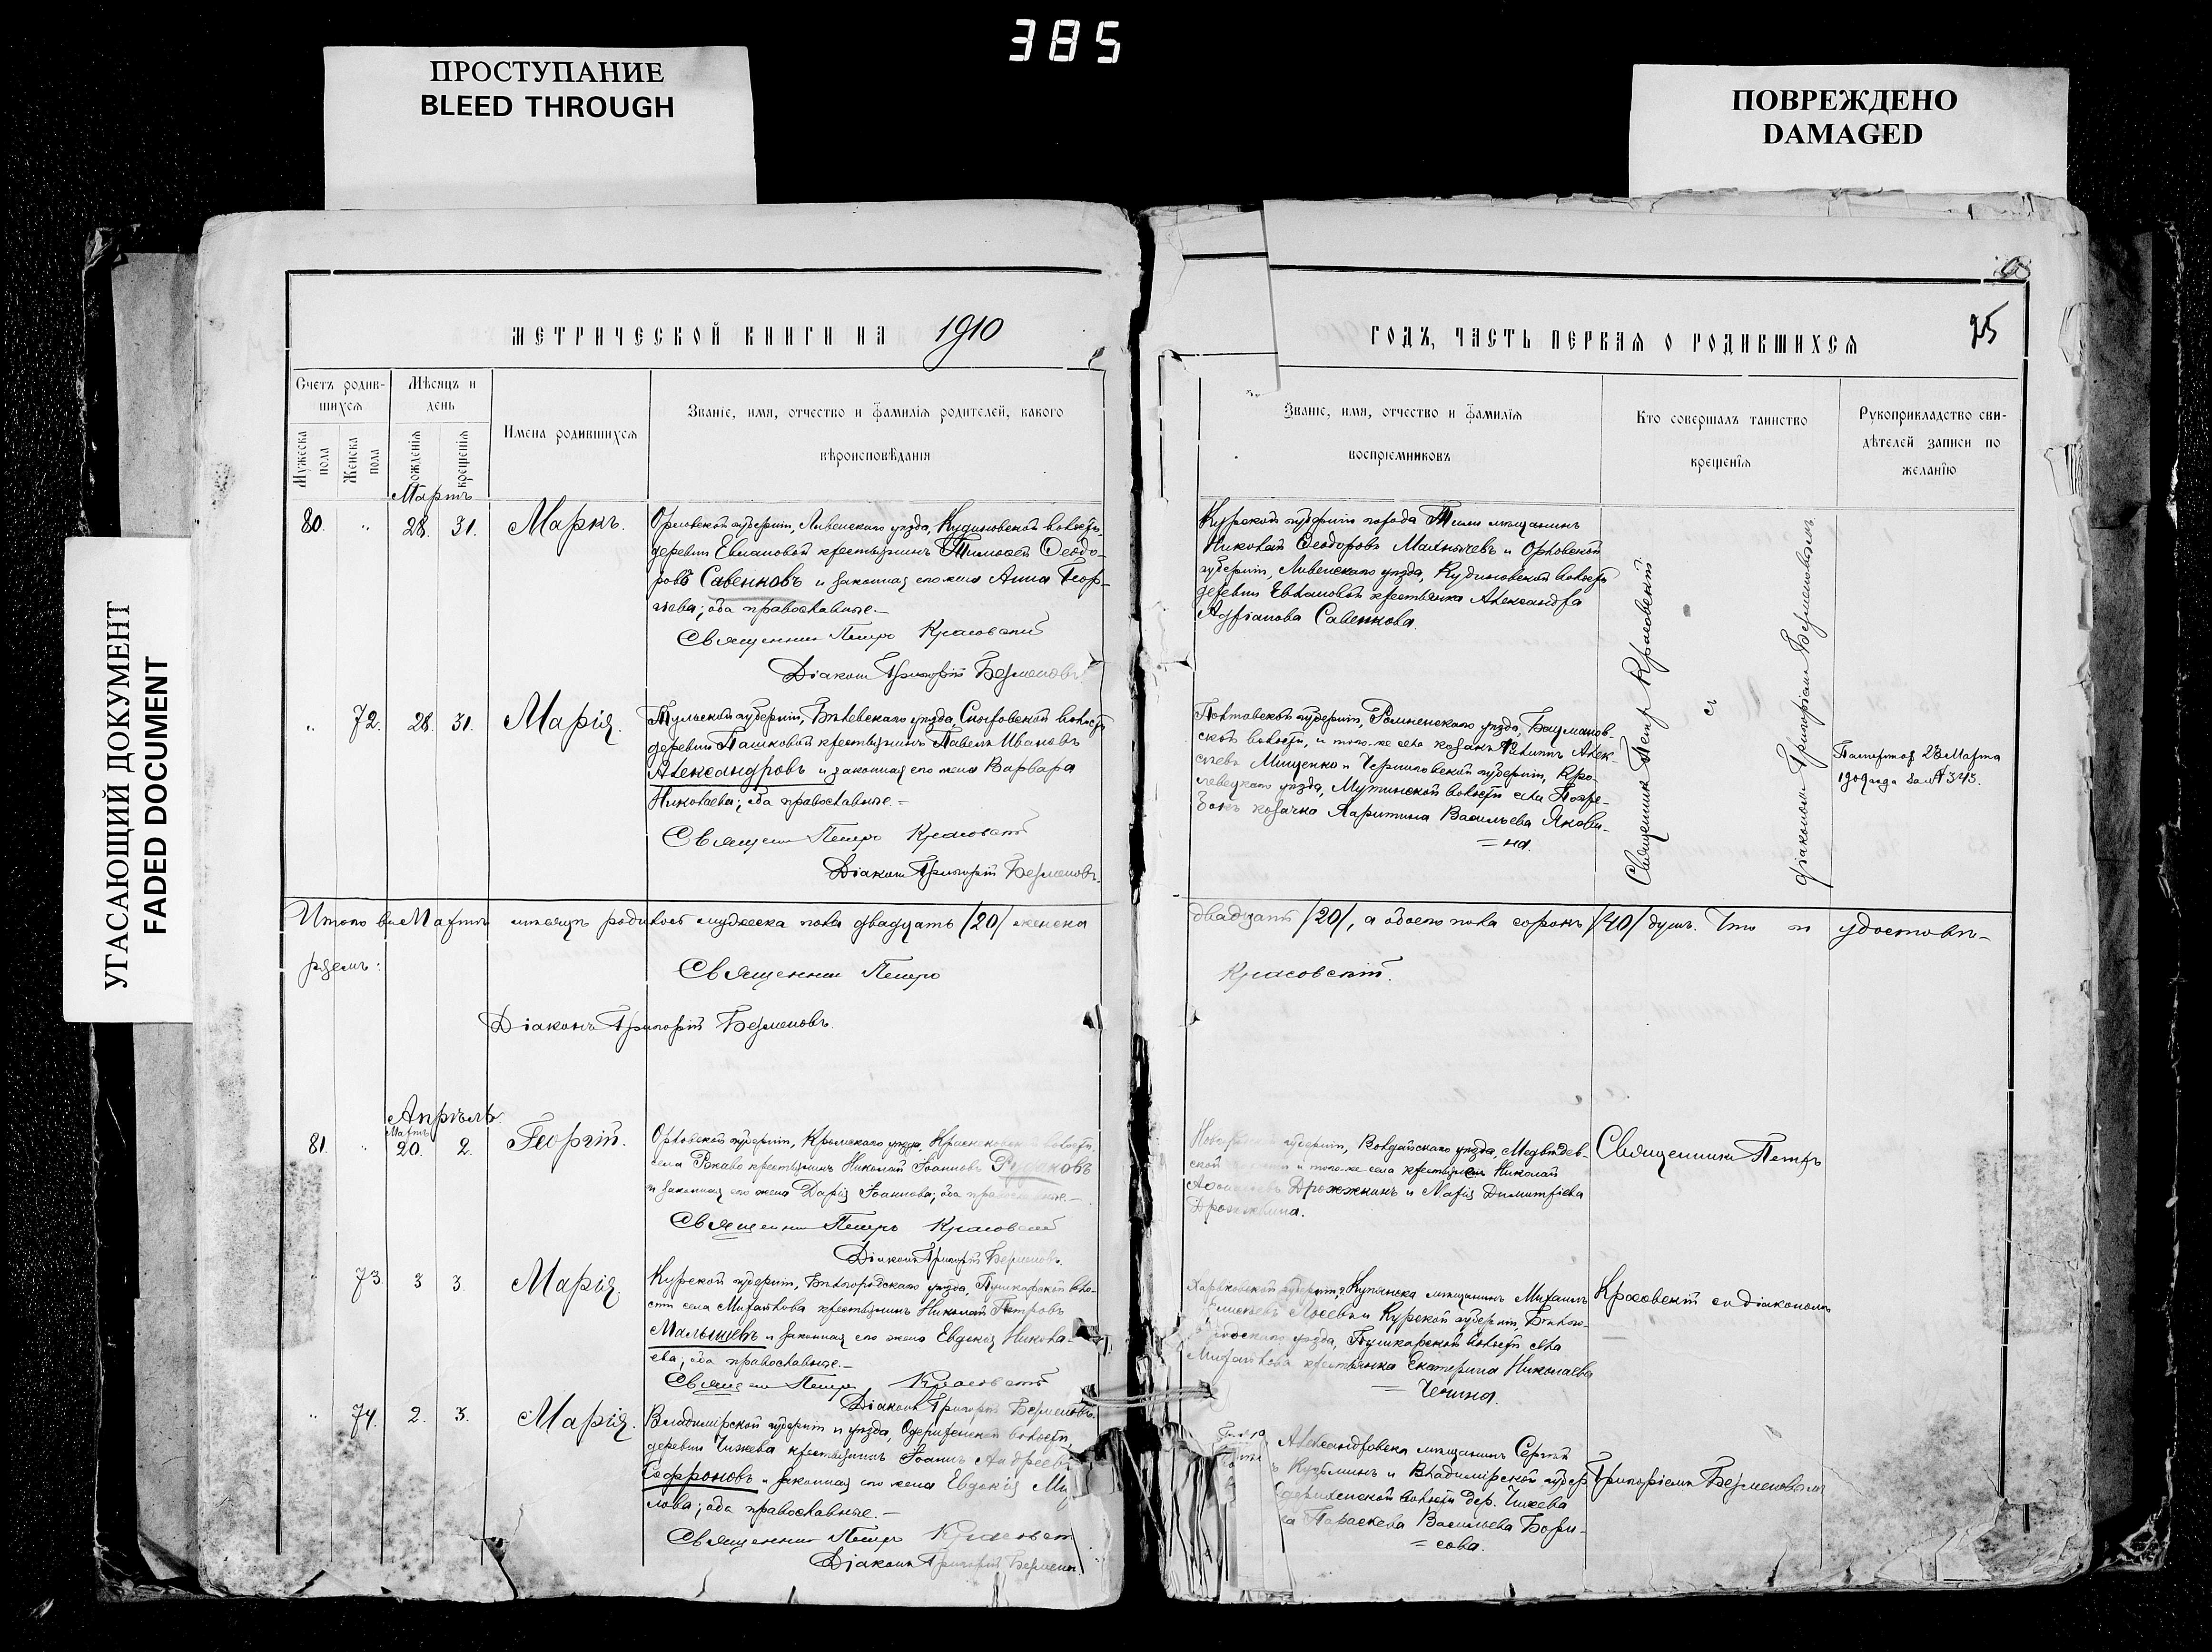 385
ПРОСТУПАНИЕ
BLEED THROUGH
ПОВРЕЖДЕНО
DAMAGED
УГАСАЮЩИЙ ДОКУМЕНТ
FADED DOCUMENT
МЕТРИЧЕСКОЙ КНИГИ НА 1910
Счетъ родив-
шихся
Мѣсяцъ и
день
Имена родившихся
Званіе, имя, отчество и фамилія родителей, какого
вѣроисповѣданія
Мужеска
пола
Женска
пола
рожденія
крещенія
Мартъ
80. " 28. 31. Маркъ.
Орловской губерніи, Ливенскаго уѣзда, Кудиновской волости,
деревни Евлановой крестьянинъ Тимоѳей Ѳеодо-
ровъ Савенковъ и законная его жена Анна Геор-
гіева; оба православные.—
Священникъ Петръ Красовскій
Діаконъ Григорій
" 72. 28. 31. Марія.
Тульской губерніи, Бѣлевскаго уѣзда, волости
деревни Пашковой крестьянинъ Павелъ Ивановъ
Александровъ и законная его жена Варвара
Николаева; оба православные.—
Священникъ Петръ Красовскій
Діаконъ Григорій
Итого въ Мартѣ мѣсяцѣ родилось мужеска пола двадцать /20/ женска
ряемъ:
Священникъ Петръ
Діаконъ Григорій
Апрѣль
Мартъ
81. " 20. 2. Георгій.
Орловской губерніи, уѣзда, волости,
села крестьянинъ Николай Іоанновъ Рудаковъ
и законная его жена Дарія Іоаннова; оба православные.—
Священникъ Петръ Красовскій
Діаконъ Григорій
73. 3 3. Марія.
Курской губерніи, Бѣлгородскаго уѣзда, Пушкарской воло-
сти села крестьянинъ Николай Петровъ
Малышевъ и законная его жена Евдокія Никола-
ева; оба православные.—
Священникъ Петръ Красовскій
Діаконъ Григорій
" 74. 2. 3. Марія.
Владимірской губерніи и уѣзда, волости,
деревни Чижева крестьянинъ Іоаннъ Андреевъ
Софроновъ и законная его жена Евдокія
лова; оба православные.—
Священникъ Петръ
Діаконъ Григорій
ГОДЪ, ЧАСТЬ ПЕРВАЯ О РОДИВШИХСЯ
25
Званіе, имя, отчество и фамилія
воспріемниковъ
Кто совершалъ таинство
крещенія
Рукоприкладство сви-
дѣтелей записи по
желанію
Курской губерніи города Тима мѣщанинъ
Николай Ѳеодоровъ и Орловской
губерніи, Ливенскаго уѣзда, Кудиновской волости
деревни Евлановой крестьянка Александра
Адріанова Савенкова.
Священникъ Петръ Красовскій
съ
діакономъ Григоріемъ
Полтавской губерніи, Роменскаго уѣзда,
ской волости, и того-же села козакъ Алек-
сѣевъ Мищенко и Черниговской губерніи, Кро-
левецкаго уѣзда, Мутинской волости села Погре-
бокъ козачка Харитина Васильева Якови-
= на.
Паспортъ 28 Марта
1909 года за № 343.
двадцать /20/, а обоего пола сорокъ /40/ душъ. Что и удостовѣ-
Красовскій.
губерніи, Валдайскаго уѣзда, Медвѣдев-
ской и того-же села крестьяне Николай
Дрожжинъ и Марія Димитріева
Дрожжина.
Священникъ Петръ
Харьковской губерніи, г. Купянска мѣщанинъ Михаилъ
и Курской губерніи, Бѣлго-
родскаго уѣзда, Пушкарской волости села
крестьянка Екатерина Николаева
Красовскій съ діакономъ
Александровска мѣщанинъ Сергѣй
Кузьминъ и Владимірской губер.
волости дер. Чижева
Параскева Васильева Бори-
= сова.
Григоріемъ